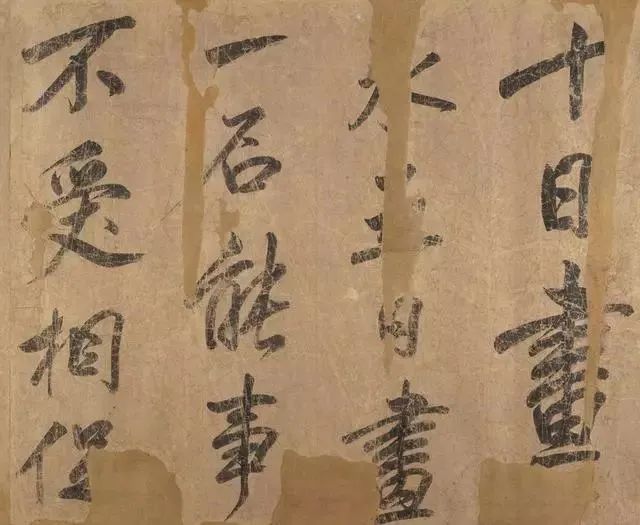 十日畫
水五日畫
一石能事
不受相促